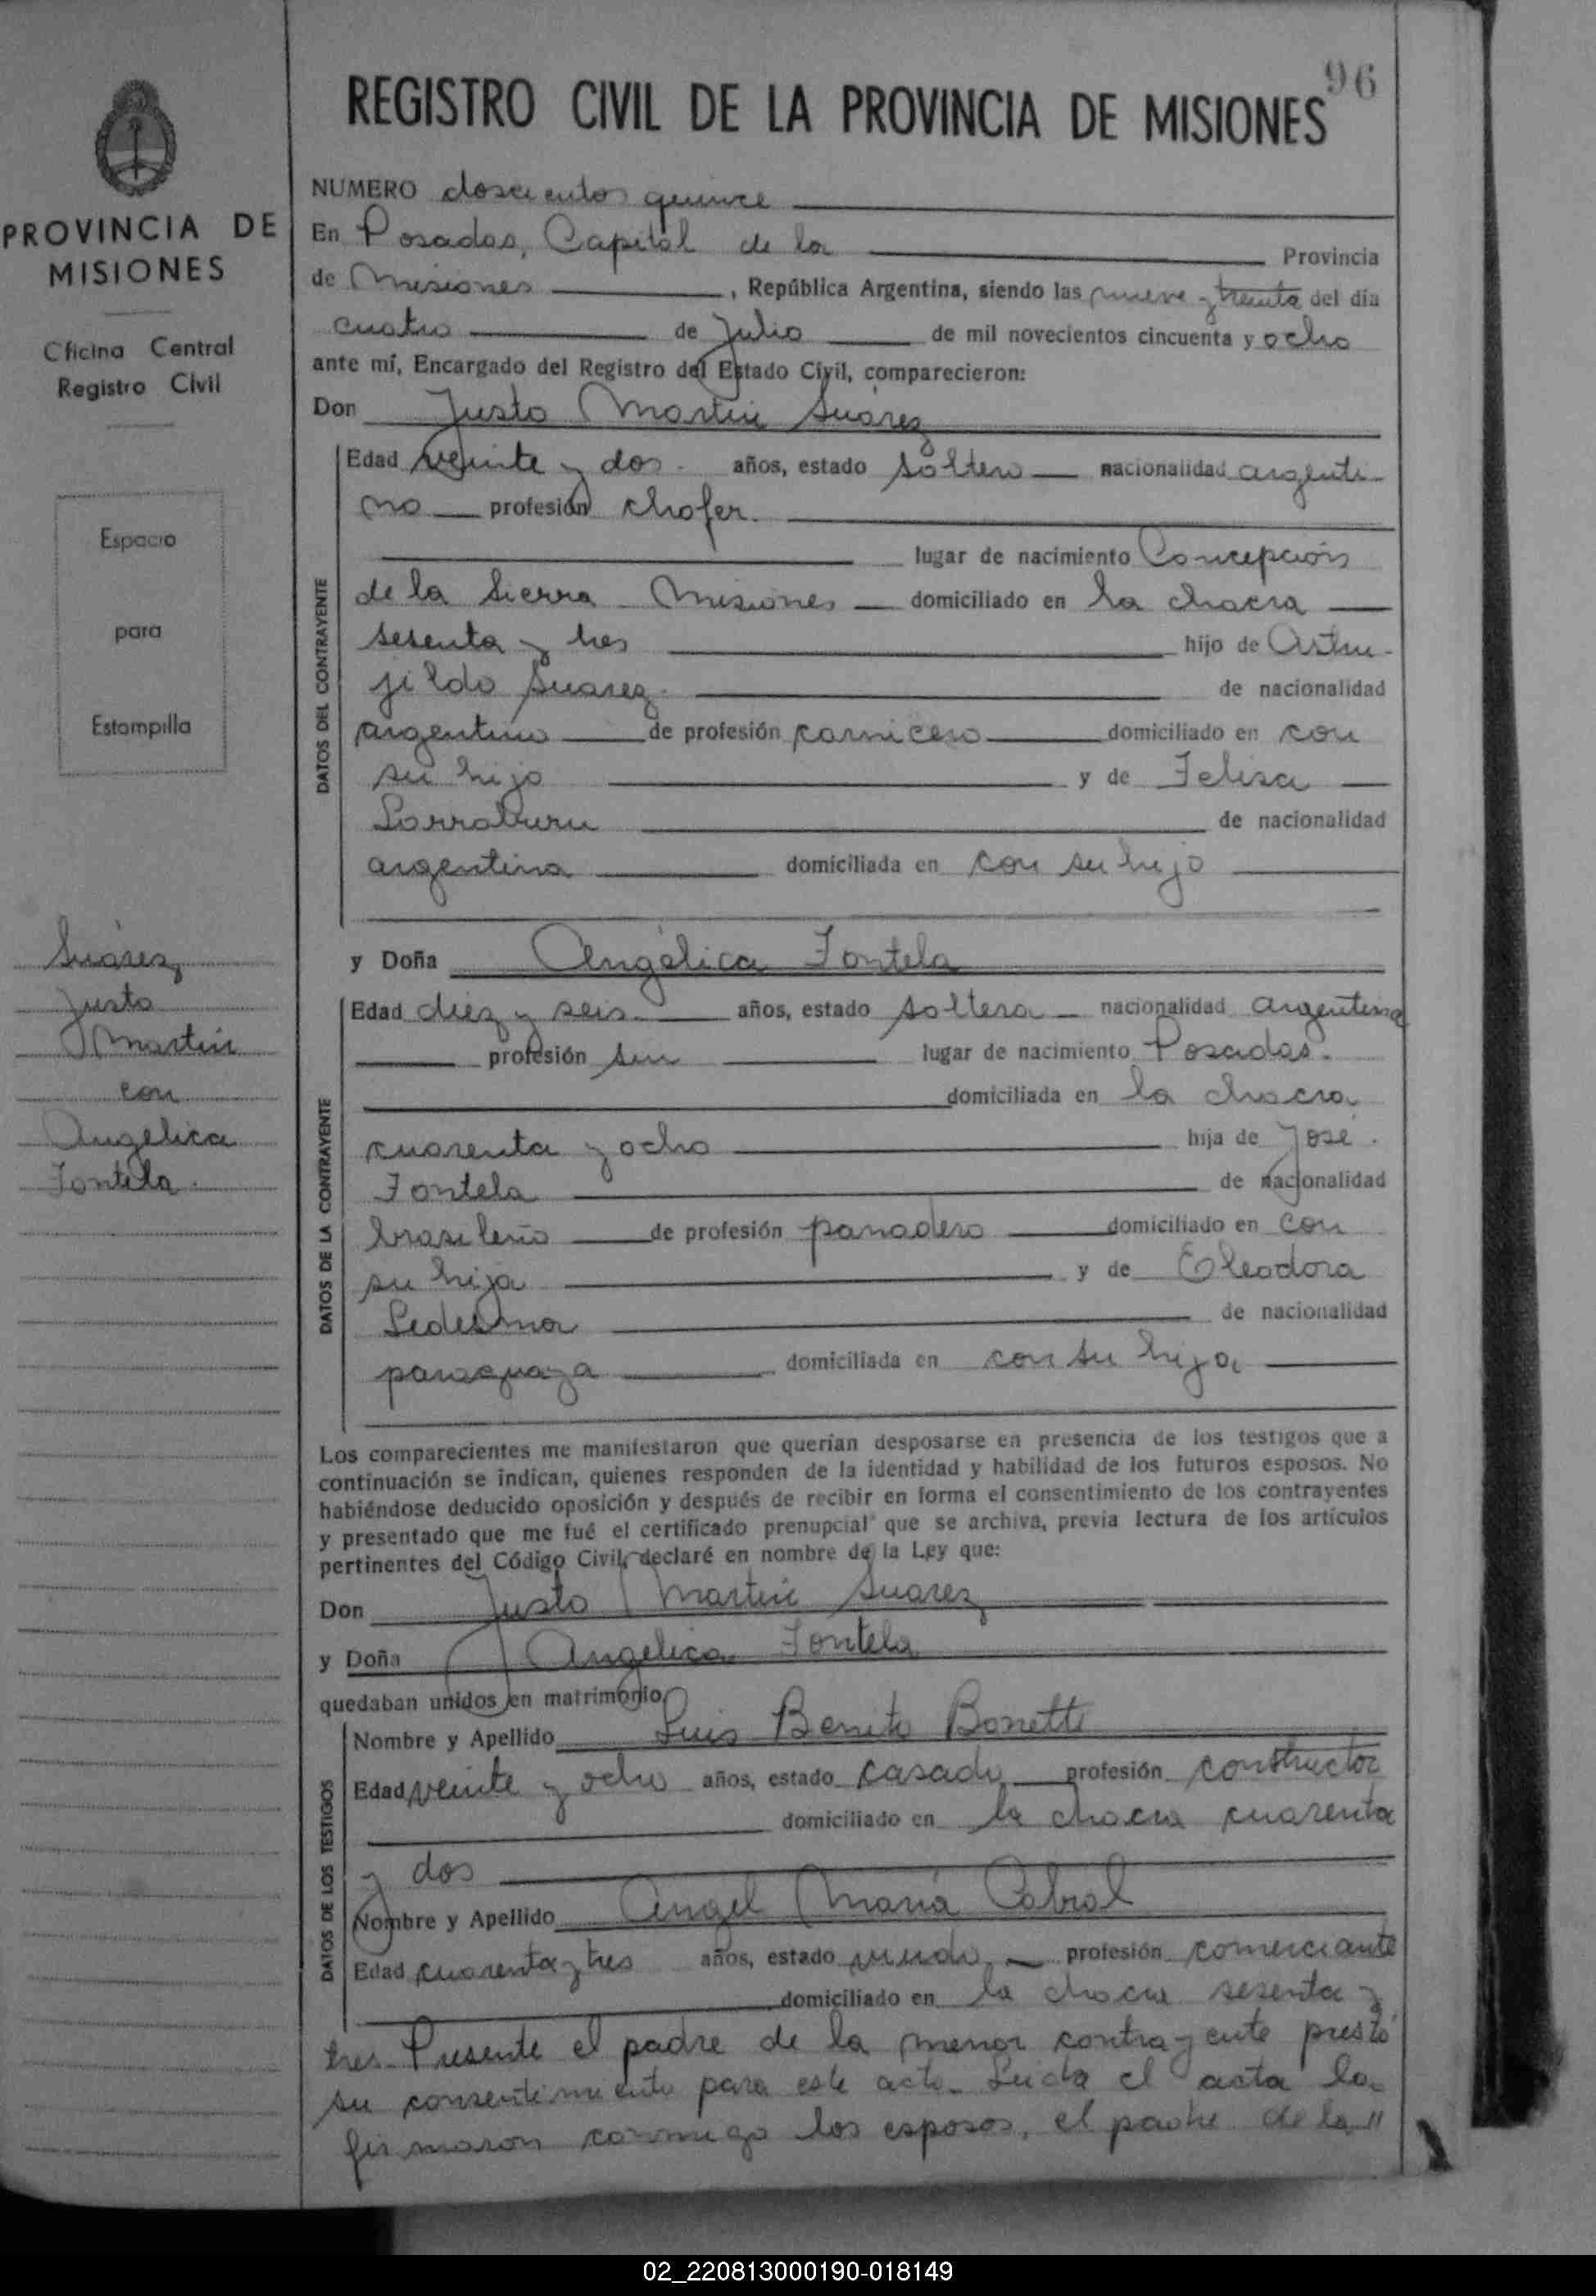 96
REGISTRO CIVIL DE LA PROVINCIA DE MISIONES
PROVINCIA DE
MISIONES
Oficina Central
Registro Civil
Espacio
para
Estampilla
Suárez
Justo
Martin
con
Angélica
Fontela.
NUMERO doscientos quince
En Posadas, Capital de la Provincia
de Misiones, República Argentina, siendo las nueve y treinta del día
cuatro de Julio de mil novecientos cincuenta y ocho
ante mí, Encargado del Registro del Estado Civil, comparecieron:
Don Justo Martin Suárez
DATOS DEL CONTRAYENTE
Edad veinte y dos. años, estado soltero nacionalidad argenti-
no profesión chofer.
lugar de nacimiento Concepción
de la Sierra Misiones domiciliado en la chacra
sesenta y tres hijo de
jildo Suarez. de nacionalidad
argentino de profesión carnicero domiciliado en con
su hijo y de Felisa
Larraburu de nacionalidad
argentina domiciliada en con su hijo
y Doña Angélica Fontela
DATOS DE LA CONTRAYENTE
Edad diez y seis. años, estado soltera nacionalidad argentina
profesión sin lugar de nacimiento Posadas.
domiciliada en la chacra
cuarenta y ocho hija de José.
Fontela de nacionalidad
brasileño de profesión panadero domiciliado en con
su hija y de Eleodora
Ledesma de nacionalidad
paraguaya domiciliada en con su hija
Los comparecientes me manifestaron que querían desposarse en presencia de los testigos que a
continuación se indican, quienes responden de la identidad y habilidad de los futuros esposos. No
habiéndose deducido oposición y después de recibir en forma el consentimiento de los contrayentes
y presentado que me fué el certificado prenupcial que se archiva, previa lectura de los artículos
pertinentes del Código Civil, declaré en nombre de la Ley que:
Don Justo Martin Suarez
y Doña Angélica Fontela
quedaban unidos en matrimonio
DATOS DE LOS TESTIGOS
Nombre y Apellido Luis Benito Bonetti
Edad veinte y ocho años, estado casado profesión constructor
domiciliado en la chacra cuarenta
y dos
Nombre y Apellido Angel María Cabral
Edad cuarenta y tres años, estado viudo profesión comerciante
domiciliado en la chacra sesenta y
tres. Presente el padre de la menor contrayente prestó
su consentimiento para este acto. Leida el acta la
firmaron conmigo los esposos, el padre de la "
02_220813000190-018149